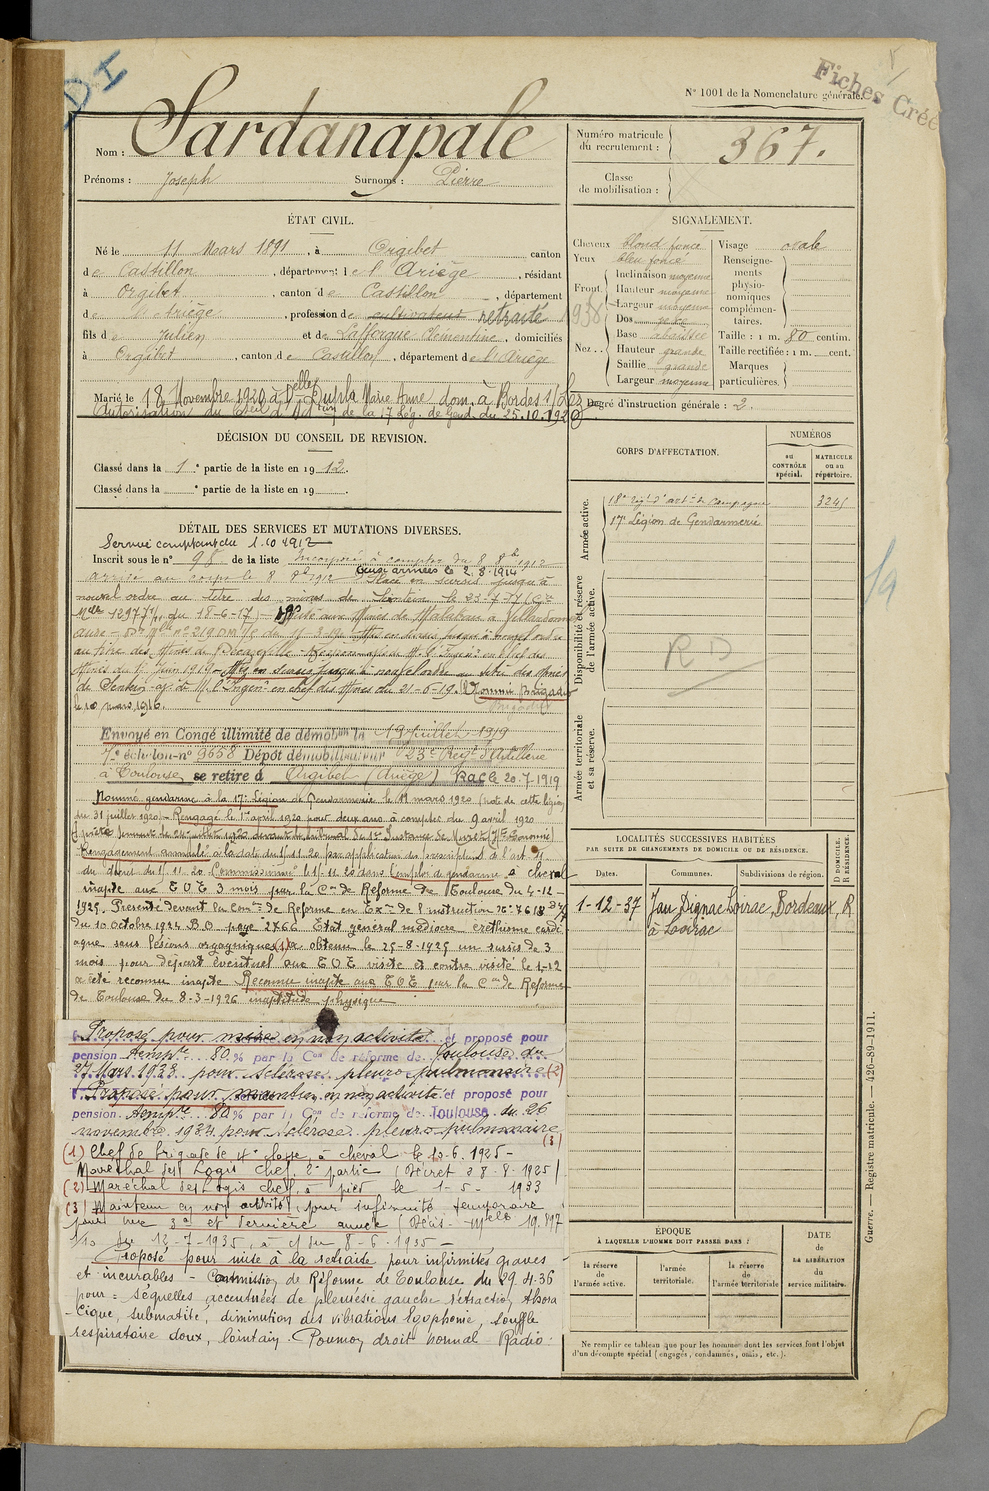 DI
Fiches Créé
N° 1001 de la Nomenclature générale.
Nom : Sardanapale
Prénoms : Joseph Surnoms : Pierre
Numéro matricule du recrutement : 367.
Classe de mobilisation :
ÉTAT CIVIL.
Né le 11 Mars 1891, à Orgibet canton
de Castillon, département de l'Ariège, résidant
à Orgibet, canton de Castillon, département
de l'Ariège, profession de cultivateur retraité
fils de Julien et de Lafforgue Clémentine, domiciliés
à Orgibet, canton de Castillon, département de l'Ariège
Marié le 18 Novembre 1920 à Delle Dupla Marie Anne, dom. à Bordes s/ Lez
Autorisation du Conseil d'Adtion de la 17 Lég. de Gend. du 25.10.1920
SIGNALEMENT.
Cheveux blond foncé
Yeux bleu foncé
Front Inclinaison moyenne
Hauteur moyenne
Largeur moyenne
Nez Dos
Base abaissée
Hauteur grande
Saillie grande
Largeur moyenne
Visage ovale
Renseignements physionomiques complémentaires.
Taille : 1 m. 80 centim.
Taille rectifiée : 1 m. cent.
Marques particulières.
Degré d'instruction générale : 2.
DÉCISION DU CONSEIL DE REVISION.
Classé dans la 1e partie de la liste en 1912.
Classé dans la e partie de la liste en 19 .
CORPS D'AFFECTATION.
NUMÉROS
au CONTRÔLE spécial.
MATRICULE ou au répertoire.
Armée active.
18e Régt d'artie de Campagne 3245
17e Légion de Gendarmerie
Disponibilité et réserve de l'armée active.
RD
Armée territoriale et sa réserve.
19
DÉTAIL DES SERVICES ET MUTATIONS DIVERSES.
Service comptant du 1.10 1912
Inscrit sous le n° 98 de la liste Incorporé à compter du 8 8bre 1912
arrivé au corps le 8 8bre 1912 Aux armées le 2.8.1914 Placé en sursis jusqu'à
nouvel ordre au titre des mines de Sentein le 23-7-17 (Cre
Mlle 12977 du 18-6-17)
Aude
au titre des Mines de
Mines du 1er Juin 1919 - Mis en sursis jusqu'à nouvel ordre au titre des mines
de Sentein - de M. l'Ingénr en chef des Mines du 21-6-19. Nommé Brigadier
le 10 mars 1916.
Envoyé en Congé illimité de démobon le 19 juillet 1919
7e échelon n° 9658 Dépôt démobilisateur 23e Régt d'Artillerie
à Toulouse se retire à Orgibet (Ariège) Rac le 20.7.1919
Nommé gendarme à la 17e Légion de Gendarmerie le 11 mars 1920 (note de cette légion
du 31 juillet 1920) - Rengagé le 1er avril 1920 pour deux ans à compter du 9 avril 1920
A prêté serment le juillet 1920 devant le tribunal de 1ère Instance de Muret (Hte Garonne)
Rengagement annulé à la date du 1.11.20 par application des prescriptions de l'art. 11
du décret du 1.11.20 Commissionné le 1.11.20 dans l'emploi de gendarme à cheval
inapte aux T O E 3 mois par la Con de Réforme de Toulouse du 4-12-
1925. Présenté devant la Comon de Réforme en Exon de l'instruction N° 7618
du 10 octobre 1924 B.O page 2766 Etat général médiocre éréthisme cardi
aque sans lésions organiques (1) a obtenu le 25-8-1925 un sursis de 3
mois pour départ éventuel aux T O E visité et contre visité le 1-12
a été reconnu inapte Reconnu inapte aux T O E par la Con de Réforme
de Toulouse du 8-3-1926 inaptitude physique
Proposé pour mise en non activité et proposé pour
pension tempre 80 % par la Con de réforme de Toulouse du
27 Mars 1933 pour sclérose pleuro pulmonaire (2)
Proposé pour maintien en non activité et proposé pour
pension tempre 80 % par la Con de réforme de Toulouse du 26
novembre 1934 pour sclérose pleuro-pulmonaire
(3)
(1) Chef de brigade de 4e classe à cheval le 10-6.1925 -
Maréchal des Logis Chef 2e partie (Décret d 8-8-1925)
(2) Maréchal des Logis chef à pied le 1-5- 1933
(3) Maintenu en non activité pour infirmité temporaire
pour une 3e et dernière année (Décis. Melle 19.897
1/10 du 12-7-1935, à c/ du 8-6-1935 -
Proposé pour mise à la retraite pour infirmités graves
et incurables - Commission de Réforme de Toulouse du 29.4.36
pour : séquelles accentuées de pleurésie gauche rétraction thora
cique, submatité, diminution des vibrations Egophonie, Souffle
respiratoire doux, lointain. Poumon droit normal - Radio :
LOCALITÉS SUCCESSIVES HABITÉES
PAR SUITE DE CHANGEMENTS DE DOMICILE OU DE RÉSIDENCE.
Dates. Communes. Subdivisions de région. D DOMICILE. R RÉSIDENCE.
1-12-37 Jau Dignac Loirac, Bordeaux, R.
à Loirac
ÉPOQUE
À LAQUELLE L'HOMME DOIT PASSER DANS :
la réserve de l'armée active.
l'armée territoriale.
la réserve de l'armée territoriale
DATE de LA LIBÉRATION du service militaire.
Ne remplir ce tableau que pour les hommes dont les services font l'objet
d'un décompte spécial (engagés, condamnés, omis, etc.).
Guerre. — Registre matricule. — 426-89-1911.